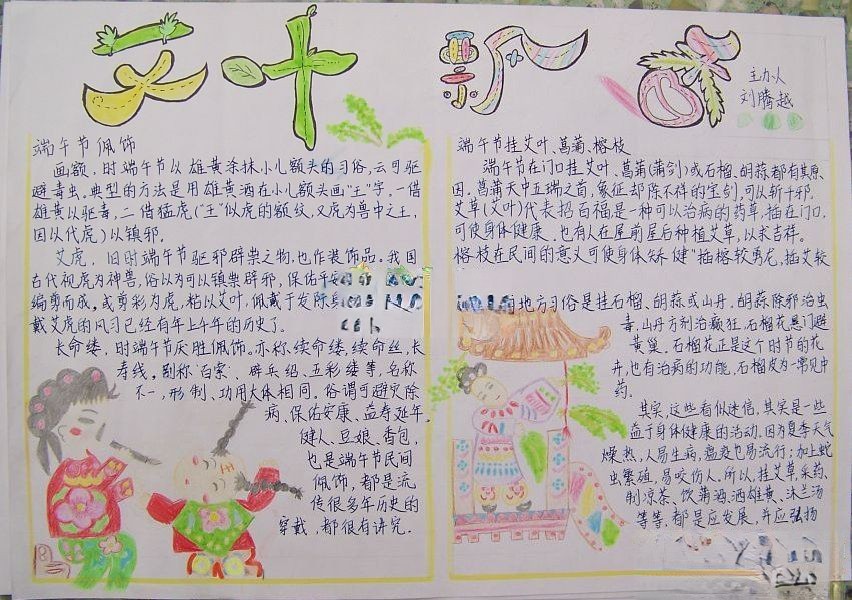 艾叶飘香
主办人
刘腾越
端午节佩饰
画额，时端午节以雄黄涂抹小儿额头的习俗，云可驱
避毒虫。典型的方法是用雄黄酒在小儿额头画"王"字，一借
雄黄以驱毒，二借猛虎（"王"似虎的额纹，又虎为兽中之王，
因以代虎）以镇邪。
艾虎，旧时端午节驱邪辟祟之物，也作装饰品。我国
古代视虎为神兽，俗以为可以镇祟辟邪，保佑
编剪而成，或剪彩为虎，粘以艾叶，佩戴于发际
戴艾虎的风习已经有年上午年的历史了。
长命缕，时端午节厌胜佩饰。亦称续命缕，续命丝，长
寿线，别称"百索"、辟兵绍、五彩缕等，名称
不一，形制、功用大体相同。俗谓可避灾除
病、保佑安康、益寿延年。
健人、豆娘、香包，
也是端午节民间
佩饰，都是流
传很多年历史的
穿戴，都很有讲究。
端午节挂艾叶、菖蒲、榕枝
端午节在门口挂艾叶、菖蒲（蒲剑）或石榴、胡蒜都有其原
因。菖蒲天中五瑞之首，象征却除不祥的宝剑，可以斩千邪。
艾草（艾叶）代表招百福是一种可以治病的药草，插在门口，
可使身体健康。也有人在屋前屋后种植艾草，以求吉祥。
榕枝在民间的意义可使身体矫健"插榕较勇龙，插艾较
地方习俗是挂石榴、胡蒜或山丹，胡蒜除邪治虫
毒，山丹方剂治癫狂。石榴花悬门避
黄巢。石榴花正是这个时节的花
卉，也有治病的功能，石榴皮为一常见中
药。
其实，这些看似迷信，其实是一些
益于身体健康的活动。因为夏季天气
燥热，人易生病，瘟疫也易流行；加上蛇
虫繁殖，易咬伤人，所以，挂艾草，采药、
制凉茶、饮蒲酒，洒雄黄、沐兰汤
等等，都是应发展，并应弘扬